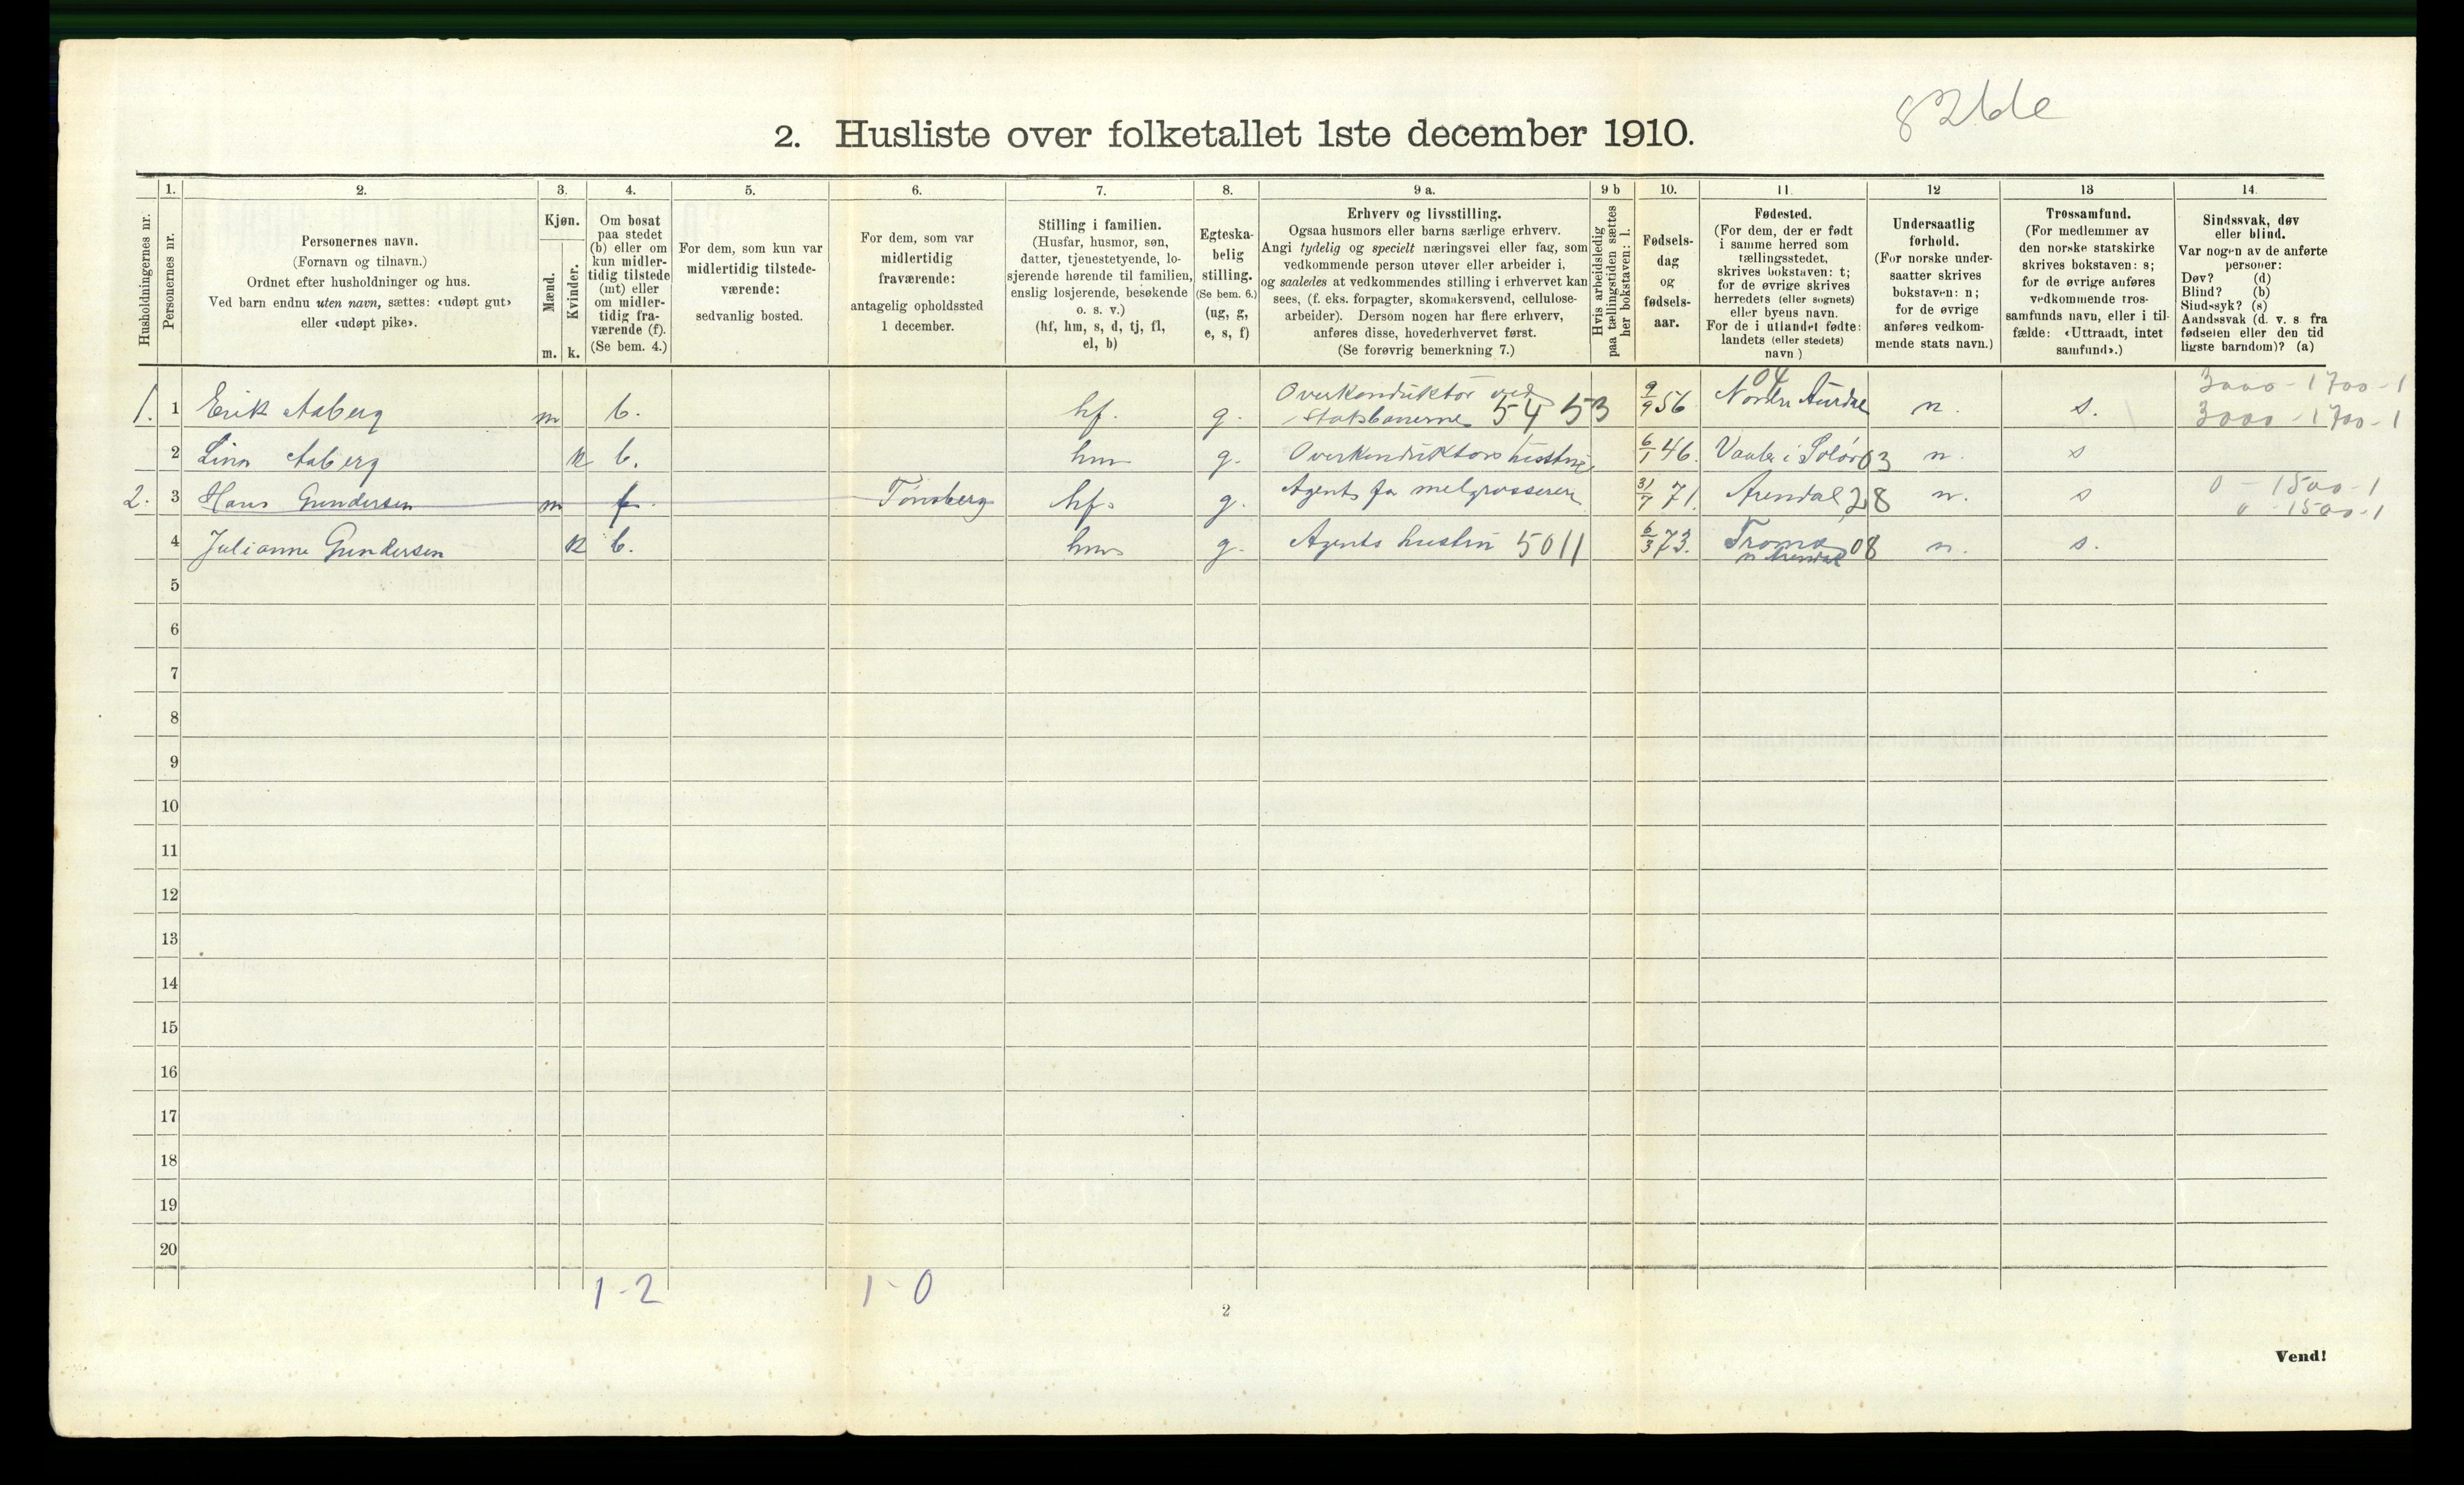 82 de
2. Husliste over folketallet 1ste december 1910.
Husholdningernes nr.
1.
Personernes nr.
2.
Personernes navn.
(Fornavn og tilnavn.)
Ordnet efter husholdninger og hus.
Ved barn endnu uten navn, sættes: «udøpt gut»
eller «udøpt pike».
3.
Kjøn.
Mænd.
Kvinder.
m. k.
4.
Om bosat
paa stedet
(b) eller om
kun midler-
tidig tilstede
(mt) eller
om midler-
tidig fra-
værende (f).
(Se bem. 4.)
5.
For dem, som kun var
midlertidig tilstede-
værende:
sedvanlig bosted.
6.
For dem, som var
midlertidig
fraværende:
antagelig opholdssted
1 december.
7.
Stilling i familien.
(Husfar, husmor, søn,
datter, tjenestetyende, lo-
sjerende hørende til familien,
enslig losjerende, besøkende
o. s. v.)
(hf, hm, s, d, tj, fl,
el, b)
8.
Egteska-
belig
stilling.
(Se bem. 6.)
(ug, g,
e, s, f)
9 a.
Erhverv og livsstilling.
Ogsaa husmors eller barns særlige erhverv.
Angi tydelig og specielt næringsvei eller fag, som
vedkommende person utøver eller arbeider i,
og saaledes at vedkommendes stilling i erhvervet kan
sees, (f. eks. forpagter, skomakersvend, cellulose-
arbeider). Dersom nogen har flere erhverv,
anføres disse, hovederhvervet først.
(Se forøvrig bemerkning 7.)
9 b
Hvis arbeidsledig
paa tællingstiden sættes
her bokstaven: l.
10.
Fødsels-
dag
og
fødsels-
aar.
11.
Fødested.
(For dem, der er født
i samme herred som
tællingsstedet,
skrives bokstaven: t;
for de øvrige skrives
herredets (eller sognets)
eller byens navn.
For de i utlandet fødte:
landets (eller stedets)
navn)
12
Undersaatlig
forhold.
(For norske under-
saatter skrives
bokstaven: n;
for de øvrige
anføres vedkom-
mende stats navn.)
13
Trossamfund.
(For medlemmer av
den norske statskirke
skrives bokstaven: s;
for de øvrige anføres
vedkommende tros-
samfunds navn, eller i til-
fælde: «Uttraadt, intet
samfund».)
14.
Sindssvak, døv
eller blind.
Var nogen av de anførte
personer:
Døv? (d)
Blind? (b)
Sindssyk? (s)
Aandssvak (d. v. s. fra
fødselen eller den tid
ligste barndom)? (a)
1. 1 Erik Aaberg m b. hf. g. Overkonduktør ved Statsbanerne 54 53 9/9 56 Nordre Aurdal 04 n. s. 3000 - 1700 - 1
3000 - 1700 - 1
2 Lina Aaberg k b. hm g. Overkonduktørs hustru 6/1 46. Vaaler i Solør 03 n. s
2. 3 Hans Gundersen m f. Tønsberg hf. g. Agent for melgrosserere 31/7 71. Arendal 28 n. s 0 - 1500 - 1
0 - 1500 - 1
4 Julianne Gundersen k b. hm g. Agents hustru 5011 6/3 73. Tromø 08 n. s.
n Arendal
5
6
7
8
9
10
11
12
13
14
15
16
17
18
19
20
1 - 2 1 - 0
2
Vend!